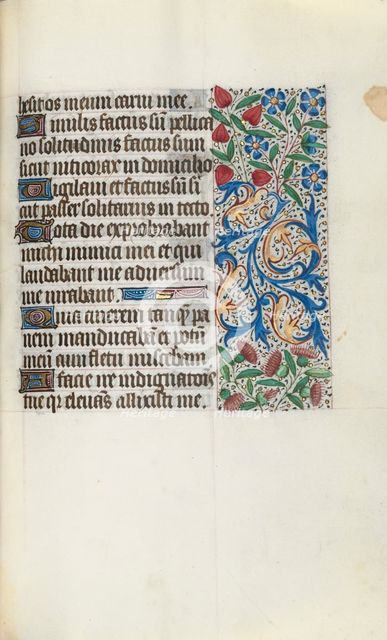 hesit os meum carni mee.
Similis factus sū pellica
no solitudinis factus sum
sicut niticorax in domicilio
Vigilavi et factus sū si
cut passer solitarius in tecto
Tota die exprobrabant
michi inimici mei et qui
laudabant me adversum
me iurabant.
Quia cinerem tanq̄ pa
nem manducabā et potū
meū cum fletu miscebam
A facie ire indignatiōis
me q̄ elevās allisisti me.
heritage